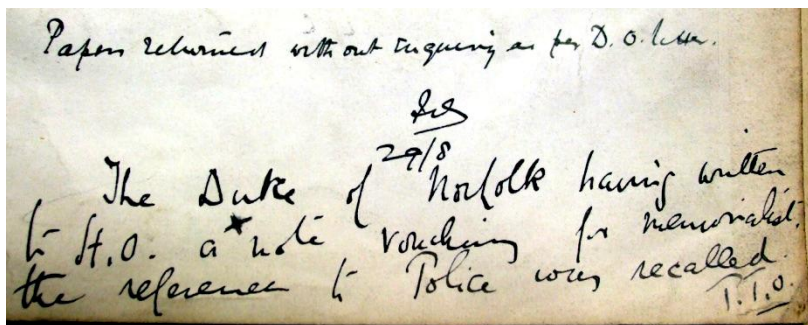 Papers returned without enquiry as per D.O. letter.
29/8
The Duke of Norfolk having written
to H.O. a note vouching for memorialist.
the reference to Police was recalled.
P.T.O.